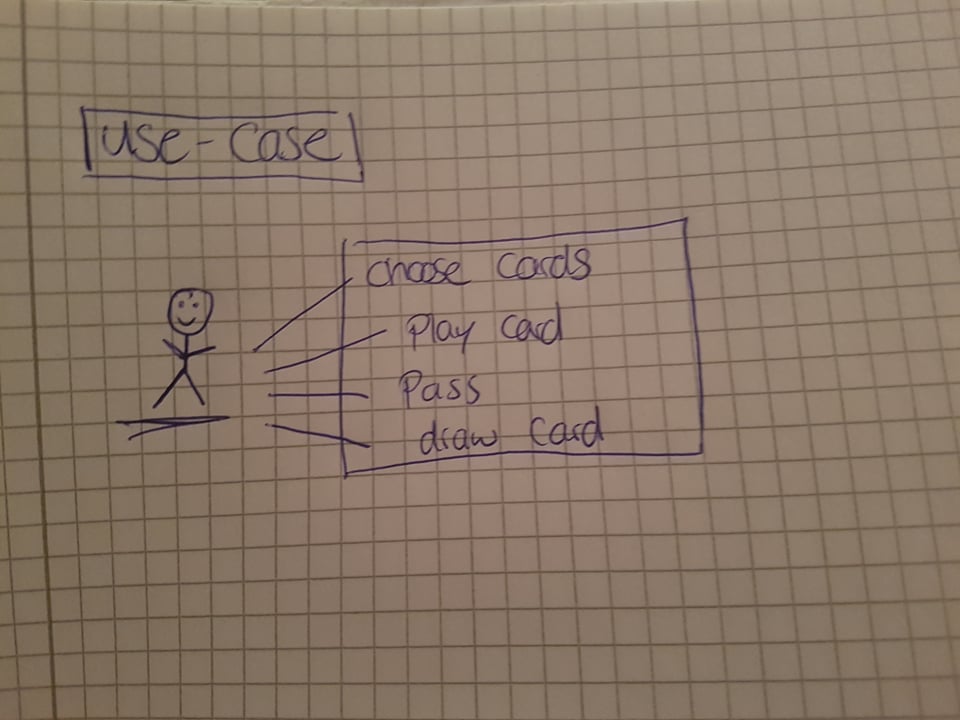 use-case
choose cards
Play card
Pass
draw card